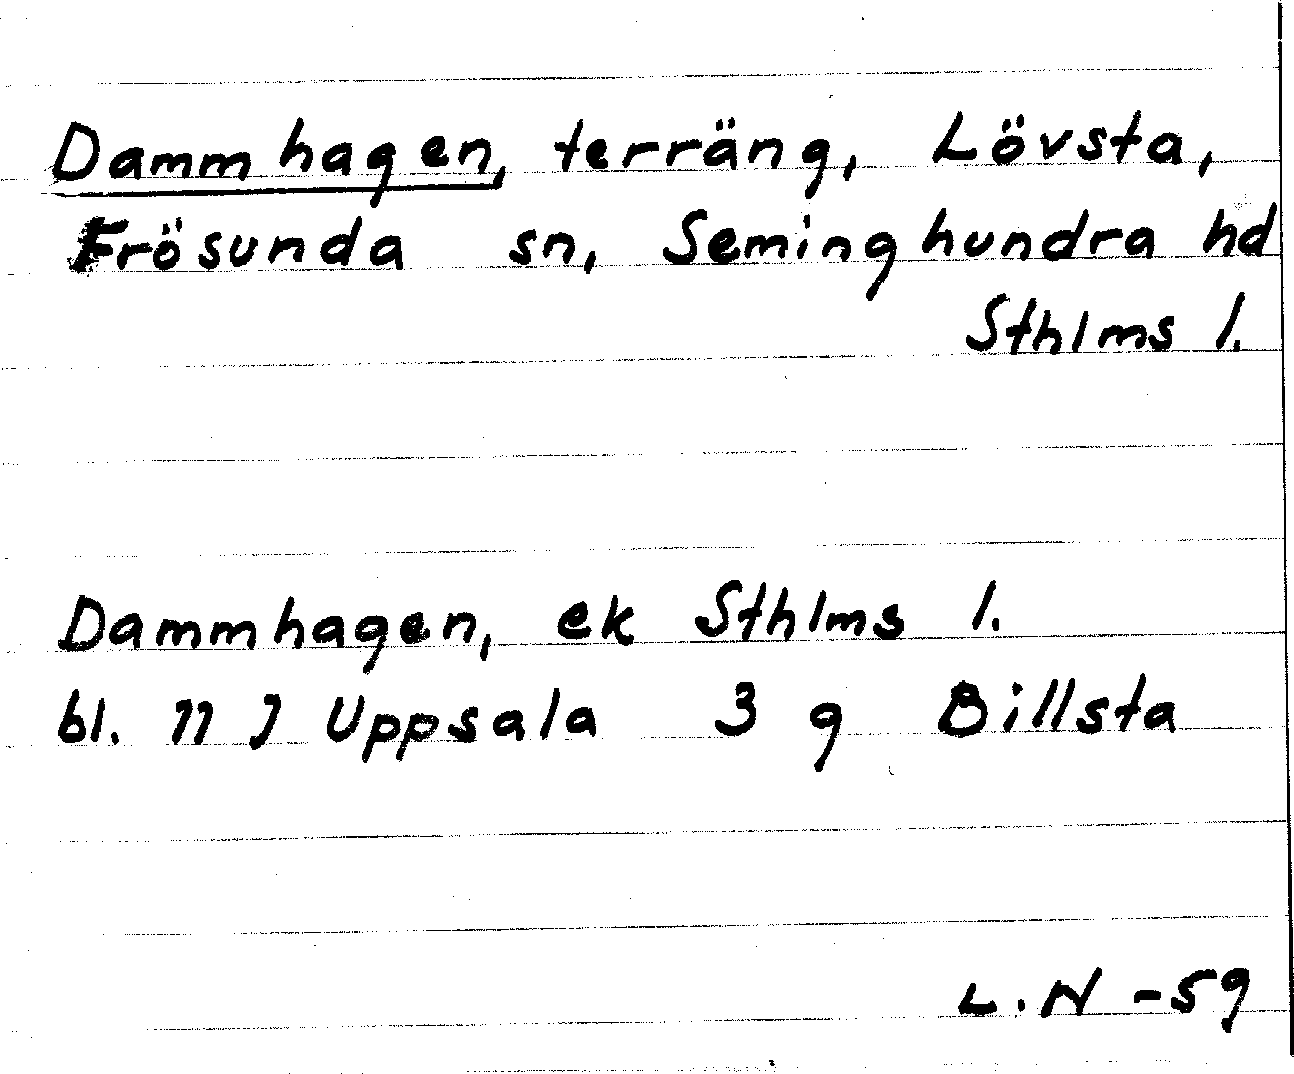 Dammhagen, terräng, Lövsta,
Frösunda sn, Seminghundra hd
Sthlms l.
Dammhagen, ek Sthlms l.
bl. 11 J Uppsala 3 g Billsta
L. N -59